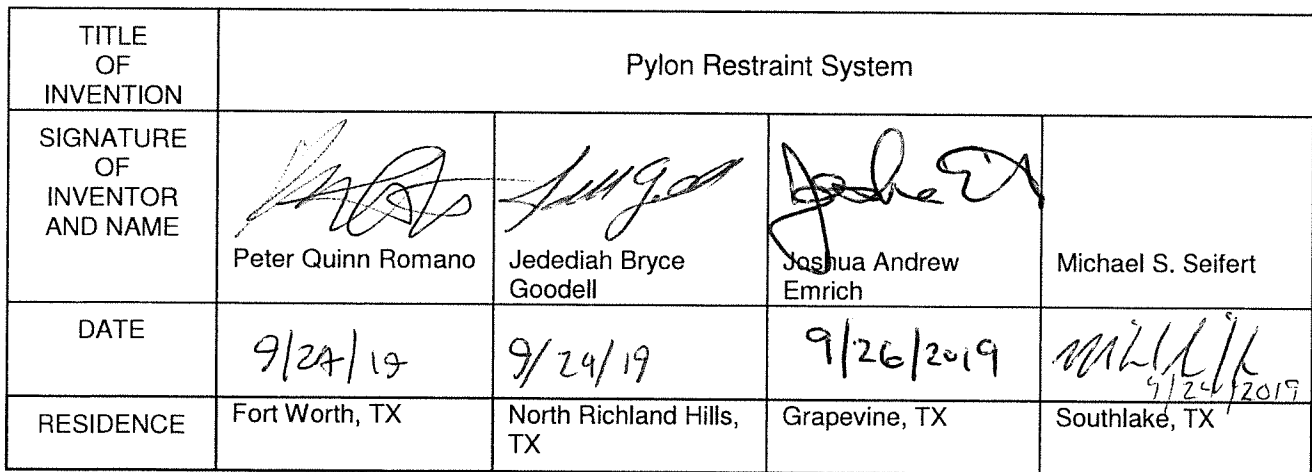 TITLE
OF
INVENTION
Pylon Restraint System
SIGNATURE
OF
INVENTOR
AND NAME
Peter Quinn Romano
Jedediah Bryce
Goodell
Joshua Andrew
Emrich
Michael S. Seifert
DATE
9/24/19
9/24/19
9/26/2019
9/24/2019
RESIDENCE
Fort Worth, TX
North Richland Hills,
TX
Grapevine, TX
Southlake, TX